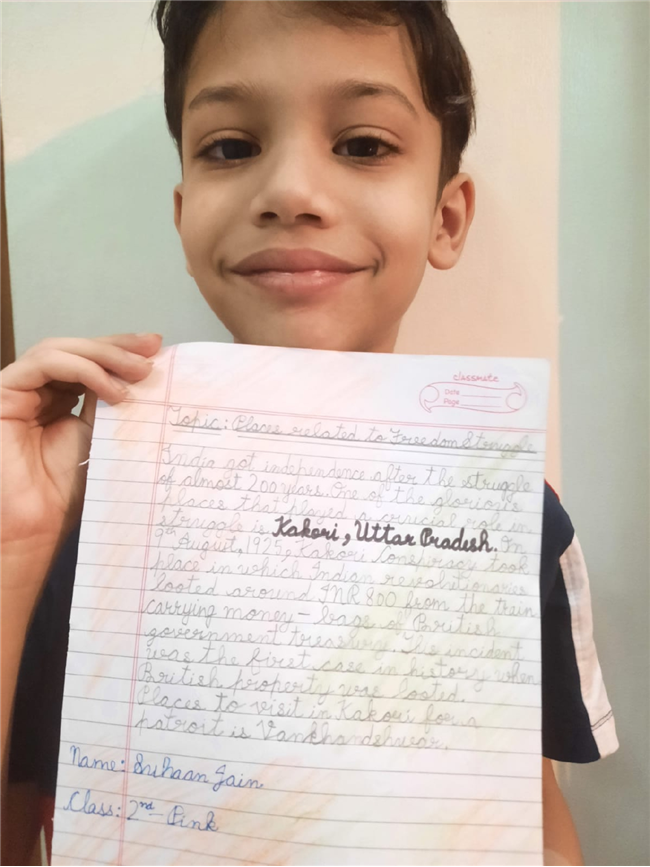 classmate
Date
Page
Topic: Places related to Freedom Struggle
India got independence after the struggle
of almost 200 years. One of the glorious
places that played a crucial role in
struggle is Kakori, Uttar Pradesh. On
9th August, 1925, Kakori Conspiracy took
place in which Indian revolutionaries
looted around INR 800 from the train
carrying money - bags of British
government treasury. This incident
was the first case in history when
British property was looted.
Places to visit in Kakori for a
patroit is Vankhandeshwar.
Name: Suhaan Jain
Class: 2nd - Pink